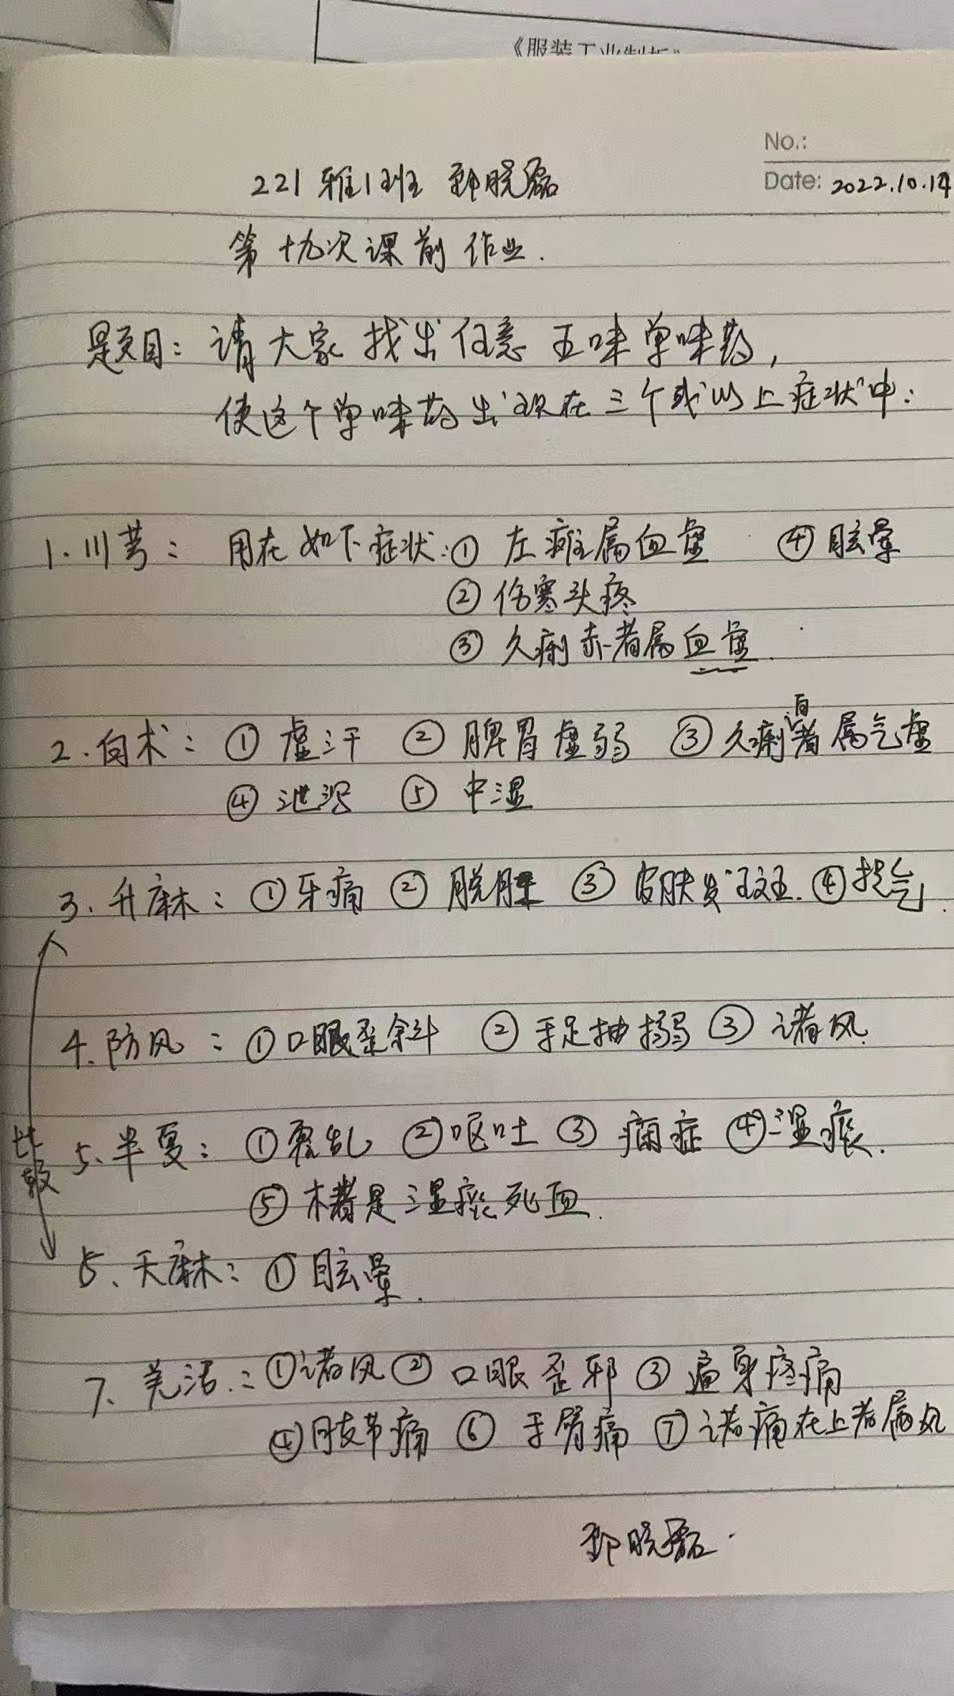 《服装工业制板》
No.:
Date: 2022.10.14
221雅1班 郅晓磊
第十九次课前作业.
题目: 请大家找出任意五味单味药,
使这个单味药出现在三个或以上症状中:
1.川芎: 用在如下症状:① 左瘫属血虚 ④ 眩晕
② 伤寒头疼
③ 久痢赤者属血虚.
2.白术: ① 虚汗 ② 脾胃虚弱 ③ 久痢白者属气虚
④ 泄泻 ⑤ 中湿
3.升麻: ①牙痛 ② 脱肛 ③ 皮肤发斑. ④提气.
4.防风: ①口眼歪斜 ② 手足抽搦 ③ 诸风.
比较
5.半夏: ①霍乱 ②呕吐 ③ 痫症 ④湿痰.
⑤ 木者是湿痰死血.
6.天麻: ① 眩晕.
7.羌活: ①诸风 ② 口眼歪邪 ③ 遍身疼痛
④肢节痛 ⑥ 手臂痛 ⑦诸痛在上者属风
郅晓磊.